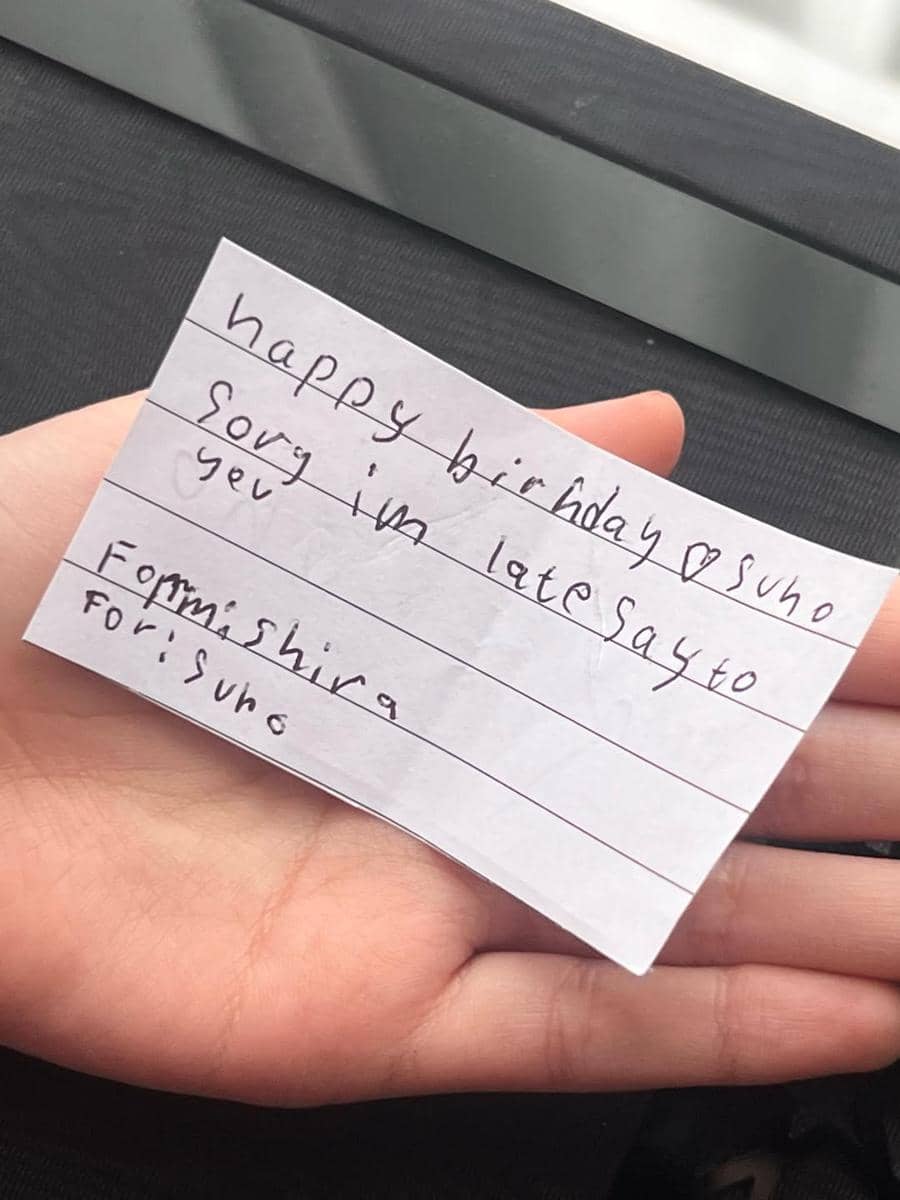 happy birhday ♡ suho
Sory im late say to
yev
Formishira
For: Suho